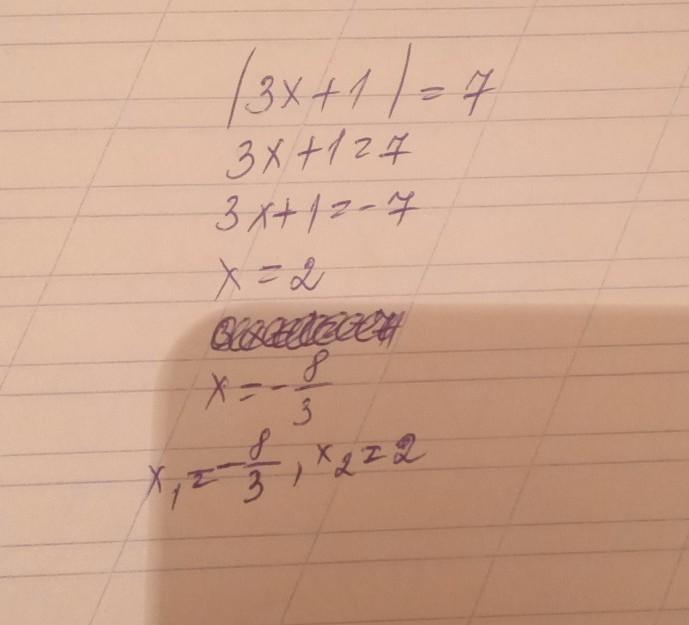 |3x+1|=7
3x+1=7
3x+1=-7
x=2
x=-8/3
x₁=-8/3, x₂=2